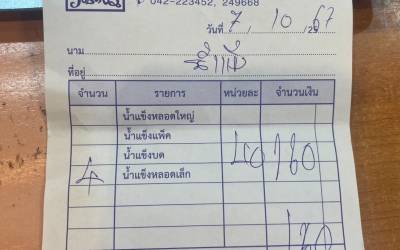 042-223452, 249668
วันที่ 7, 10, 67
นาม น้ำแข็ง
ที่อยู่
จำนวน รายการ หน่วยละ จำนวนเงิน
น้ำแข็งหลอดใหญ่
น้ำแข็งแพ็ค
น้ำแข็งบด 40 160
4 น้ำแข็งหลอดเล็ก
160